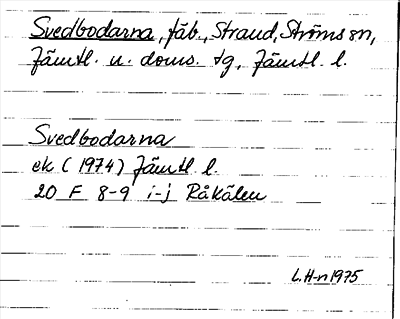 Svedbodarna, fäb., Strand, Ströms sn,
Jämtl. n. doms. tg, Jämtl. l.
Svedbodarna
ek (1974) Jämtl l.
20 F 8-9 i-j Råkälen
L.H-n 1975